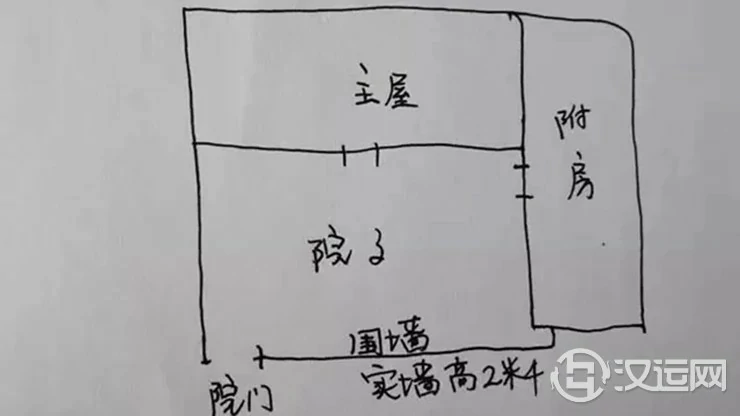 主屋
附房
院子
围墙
实墙高2米4
院门
汉运网